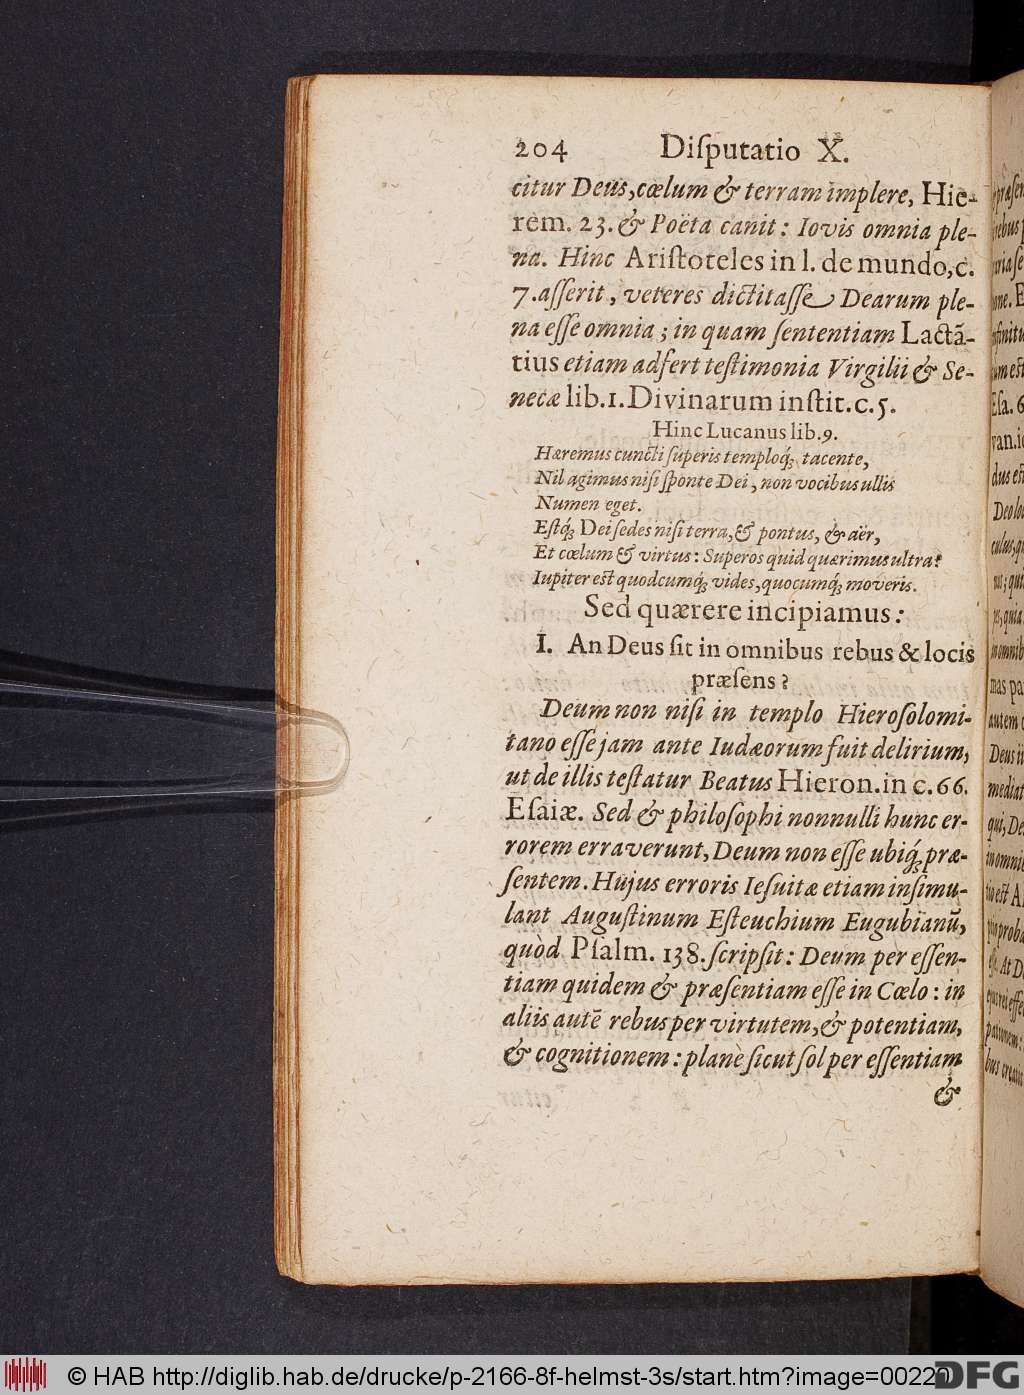 204 Diſputatio X.
citur Deus, cœlum & terram implere, Hie-
rem. 23. & Poëta canit: Iovis omnia ple-
na. Hinc Ariſtoteles in l. de mundo, c.
7. aſſerit, veteres dictitaſſe Dearum ple-
na eſſe omnia; in quam ſententiam Lactã-
tius etiam adfert teſtimonia Virgilii & Se-
necæ lib. 1. Divinarum inſtit. c. 5.
Hinc Lucanus lib. 9.
Hæremus cuncti ſuperis temploq́; tacente,
Nil agimus niſi ſponte Dei, non vocibus ullis
Numen eget.
Eſtq́; Dei ſedes niſi terra, & pontus, & aër,
Et cœlum & virtus: Superos quid quærimus ultra?
Iupiter eſt quodcumq́; vides, quocumq́; moveris.
Sed quærere incipiamus:
I. An Deus ſit in omnibus rebus & locis
præſens?
Deum non niſi in templo Hieroſolomi-
tano eſſe jam ante Iudæorum fuit delirium,
ut de illis teſtatur Beatus Hieron. in c. 66.
Eſaiæ. Sed & philoſophi nonnulli hunc er-
rorem erraverunt, Deum non eſſe ubiq́; præ-
ſentem. Hujus erroris Ieſuitæ etiam inſimu-
lant Auguſtinum Eſteuchium Eugubianũ,
quòd Pſalm. 138. ſcripſit: Deum per eſſen-
tiam quidem & præſentiam eſſe in Cœlo: in
aliis autẽ rebus per virtutem, & potentiam,
& cognitionem: planè ſicut ſol per eſſentiam
&
© HAB http://diglib.hab.de/drucke/p-2166-8f-helmst-3s/start.htm?image=00220
DFG